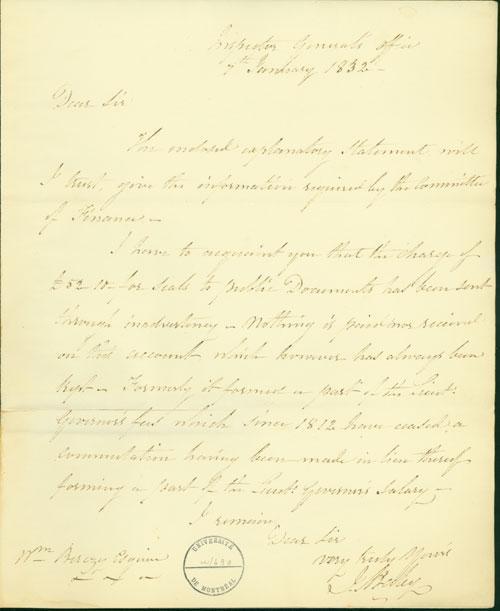 Inspector Generals office
7th January 1832 -
Dear Sir
The enclosed explanatory Statement will
I trust, give the information required by the Committee
of Finance -
I have to acquaint you that the Charge of
£52 10 - for Seals to public Documents has been sent
through inadvertency - Nothing is paid nor received
on that account which however has always been
kept - Formerly it formed a part of the Lieut:
Governor's fees which since 1812 have ceased, a
commutation having been made in lieu thereof
forming a part of the Lieut: Governor's Salary -
I remain
Dear Sir
very truly Yours
Wm Berczy Esquire
UNIVERSITÉ
DE MONTRÉAL